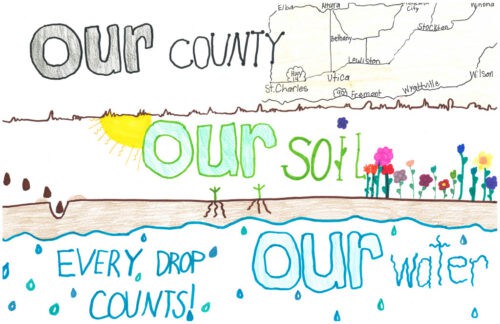 OUR COUNTY
Elba
Altura
City
Winona
Stockton
Bethany
Lewiston
Utica
HWY
14
St. Charles
90
Fremont
Wyattville
Wilson
OUR SOIL
EVERY DROP
COUNTS!
OUR water